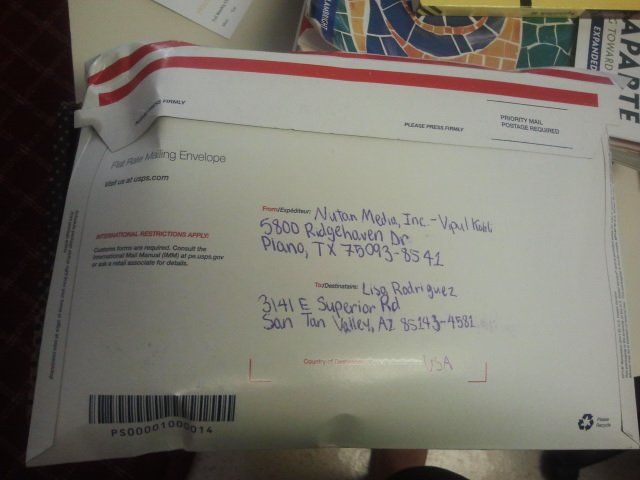 CAMBRIGHT
APARTE
G TOWARD
EXPANDED
PRESS FIRMLY
PLEASE PRESS FIRMLY
PRIORITY MAIL
POSTAGE REQUIRED
Flat Rate Mailing Envelope
Visit us at usps.com
INTERNATIONAL RESTRICTIONS APPLY:
Customs forms are required. Consult the
International Mail Manual (IMM) at pe.usps.gov
or ask a retail associate for details.
From/Expéditeur: Nutan Media, Inc - Vipul Kohli
5800 Ridgehaven Dr
Plano, TX 75093-8541
To/Destinataire: Lisa Rodriguez
3141 E Superior Rd
San Tan Valley, AZ 85143-4581
Country of Destination USA
PS00001000014
Please
Recycle